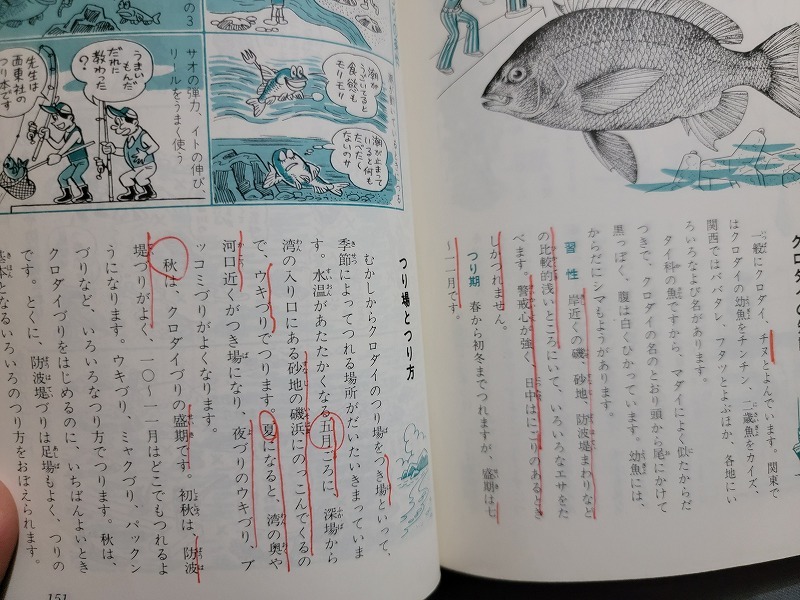 一般にクロダイ、チヌとよんでいます。関東で
はクロダイの幼魚をチンチン、一歳魚をカイズ、
関西ではババタレ、フタツとよぶほか、各地にい
ろいろなよび名があります。
タイ科の魚ですから、マダイによく似たからだ
つきで、クロダイの名のとおり頭から尾にかけて
黒っぽく、腹は白くひかっています。幼魚には、
からだにシマもようがあります。
習性 岸近くの磯、砂地、防波堤まわりなど
の比較的浅いところにいて、いろいろなエサをた
べます。警戒心が強く、日中はにごりのあるとき
しかつれません。
つり期 春から初冬までつれますが、盛期は七
〜一二月です。
潮が
うごいてると
食慾も
モリモリ
潮が止まって
いると何も
たべたく
ないのサ
の3
サオの弾力、イトの伸び、
リールをうまく使う
うまい
もんだ
だれに
教わった
?
先生は
西東社の
つり本です
つり場とつり方
むかしからクロダイのつり場をつき場といって、
季節によってつれる場所がだいたいきまっていま
す。水温があたたかくなる五月ごろに 深場から
湾の入り口にある砂地の磯浜にのっこんでくるの
で、ウキづりでつります。夏になると、湾の奥や
河口近くがつき場になり、夜づりのウキづり、ブ
ッコミづりがよくなります。
秋は、クロダイづりの盛期です。初秋は、防波
堤づりがよく、一〇〜一一月はどこでもつれるよ
うになります。ウキづり、ミャクづり、パックン
づりなど、いろいろなつり方でつります。秋は、
クロダイづりをはじめるのに、いちばんよいとき
です。とくに、防波堤づりは足場もよく、つりの
基本となるいろいろのつり方をおぼえられます。
151